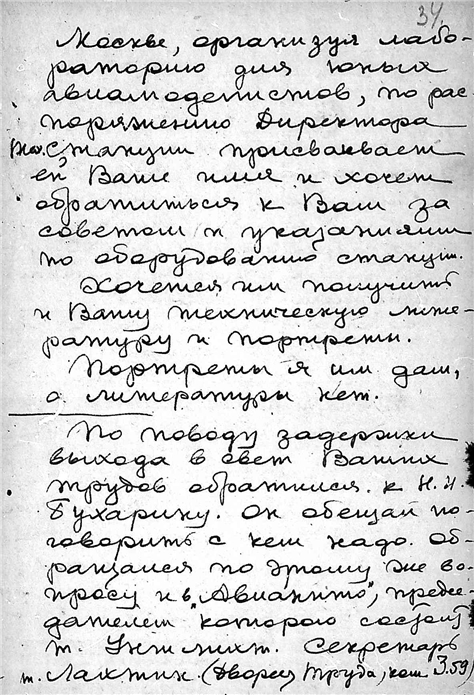 34.
Москве, организуя лабо-
раторию для юных
авиамоделистов, по рас-
поряжению Директора
Станции присваивает
ей Ваше имя и хочет
обратиться к Вам за
советом и указаниями
по оборудованию станции.
Хочется им получить
и Вашу техническую лите-
ратуру и портреты.
Портреты я им дам,
а литературы нет.
По поводу задержки
выхода в свет Ваших
трудов обратился к Н. И.
Бухарину. Он обещал по-
говорить с кем надо. Об-
ращался по этому же во-
просу и в "Авианито", предсе-
дателем которого состоит
т. Уншлихт. Секретарь
т. Лактик. (Дворец Труда, ком 353)